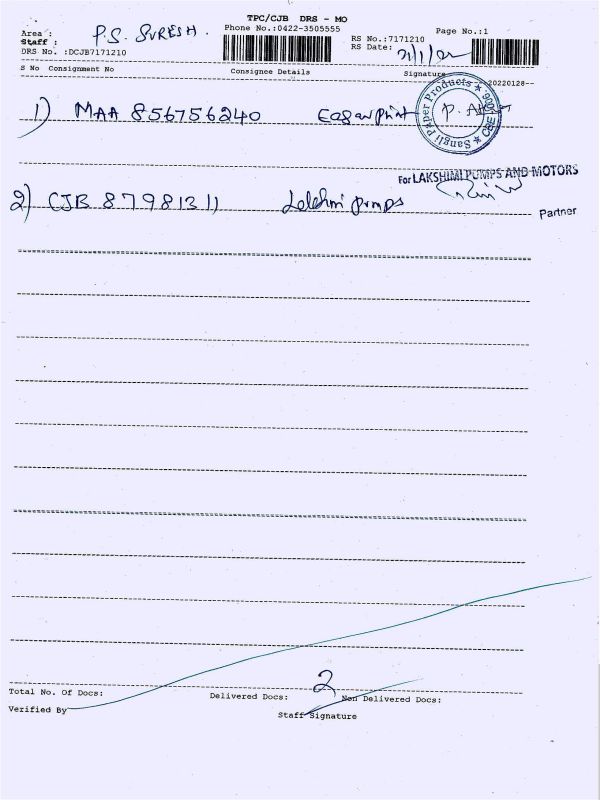 TPC/CJB DRS - MO
Area : P.S. SURESH. Phone No.:0422-3505555 Page No.:1
Staff : RS No.:7171210
DRS No. :DCJB7171210 RS Date:
S No Consignment No Consignee Details Signature 20220128--
1) MAA 856756240
Sangli Paper Products CBE 9006
For LAKSHIMI PUMPS AND MOTORS
2) CJB 87981311 Lakshmi pumps
Partner
2
Total No. Of Docs: Delivered Docs: Non Delivered Docs:
Verified By
Staff Signature